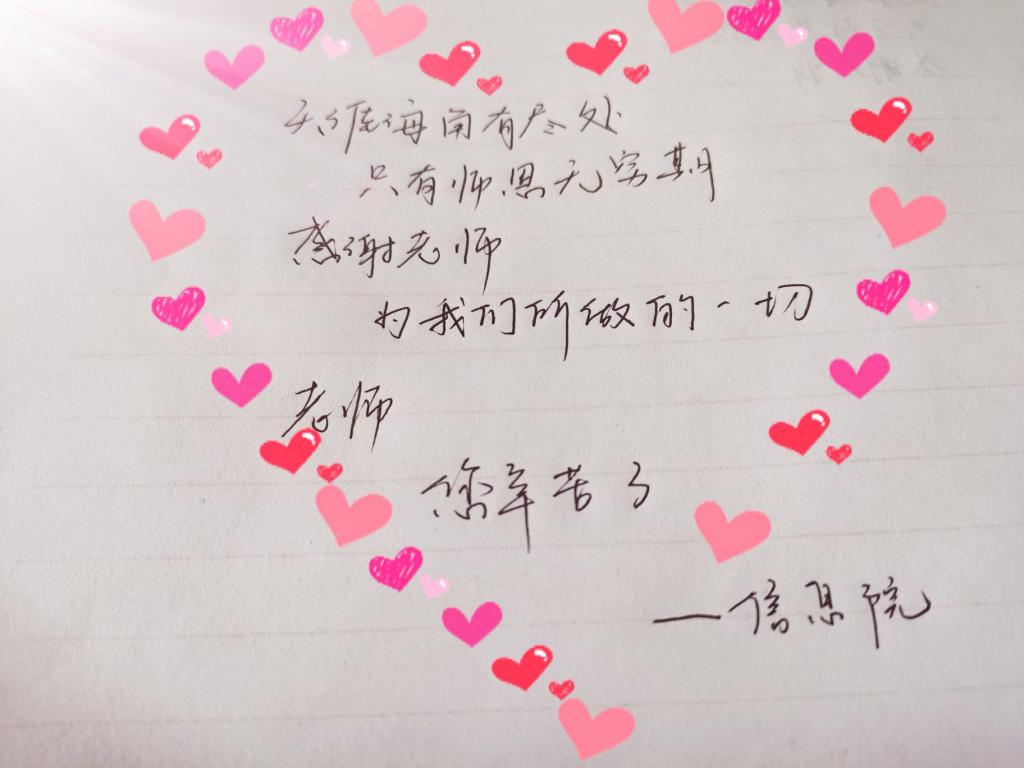 天涯海角有尽处
只有师恩无穷期
感谢老师
为我们所做的一切
老师
您辛苦了
—信息院